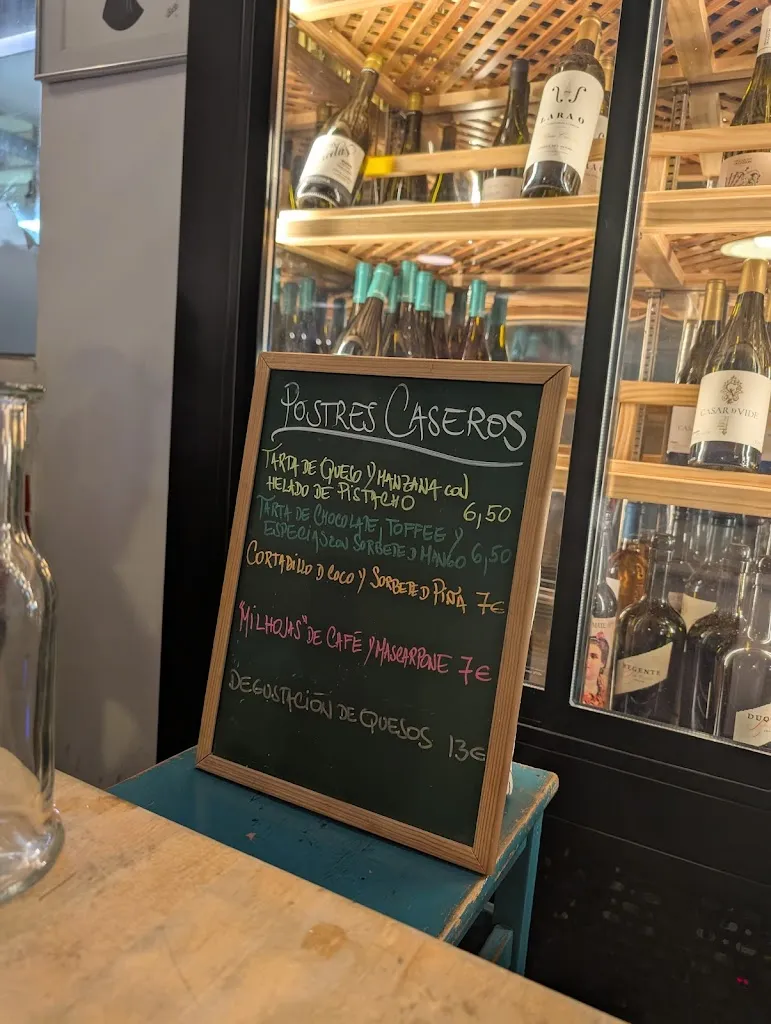 POSTRES CASEROS
TARTA DE QUESO Y MANZANA CON
HELADO DE PISTACHO 6,50
TARTA DE CHOCOLATE, TOFFEE Y
ESPECIAS CON SORBETE D MANGO 6,50
CORTADILLO D COCO Y SORBETE D PIÑA 7€
"MILHOJAS" DE CAFÉ Y MASCARPONE 7€
DEGUSTACIÓN DE QUESOS 13€
CASAR D VIDE
REGENTE
DUQ